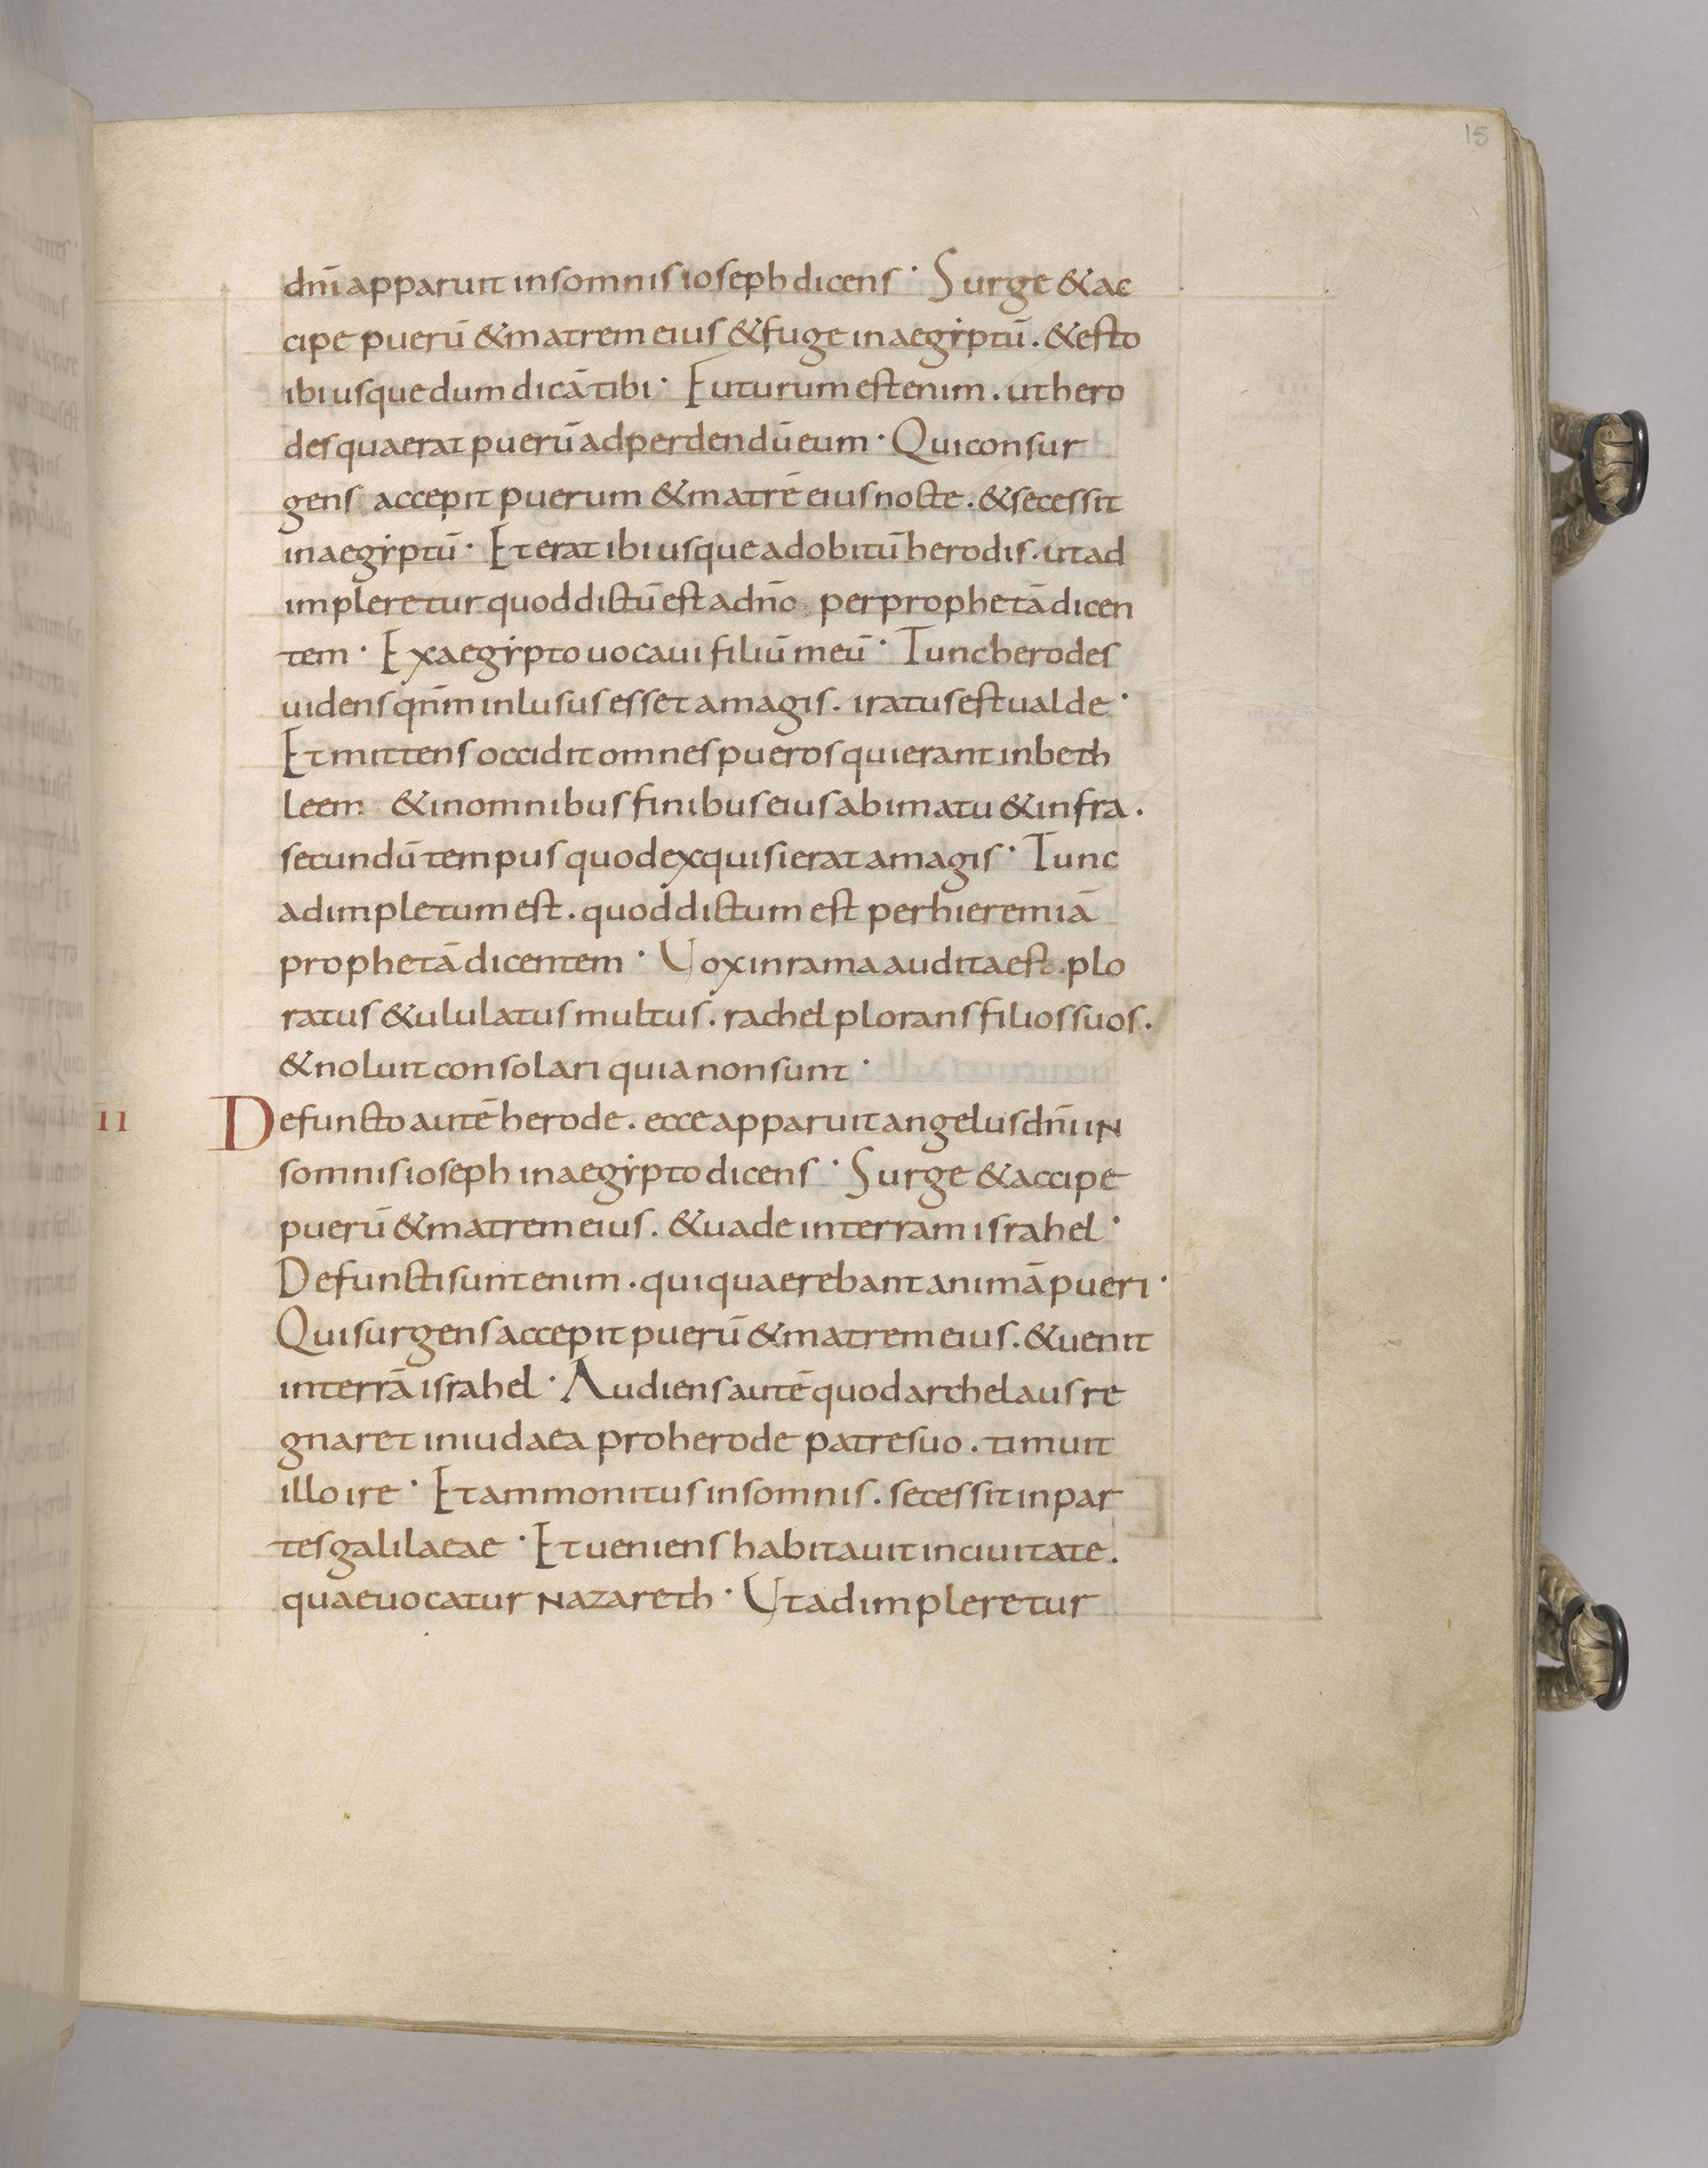 15
dnī apparuit in somnis ioseph dicens· Surge & ac
cipe puerū & matrem eius & fuge in aegiptū. & esto
ibi usque dum dicā tibi· Futurum est enim. ut hero
des quaerat puerū ad perdendū eum· Qui consur
gens accepit puerum & matrē eius nocte. & secessit
in aegiptū· Et erat ibi usque ad obitū herodis. ut ad
impleretur quod dictū est a dn̄o per prophetā dicen
tem· Ex aegipto uocaui filiū meū· Tunc herodes
uidens qn̄m inlusus esset a magis. iratus est ualde·
Et mittens occidit omnes pueros qui erant in beth
leem & in omnibus finibus eius a bimatu & infra.
secundū tempus quod exquisierat a magis· Tunc
adimpletum est. quod dictum est per hieremiā
prophetā dicentem· Uox in rama audita est. plo
ratus & ululatus multus. rachel plorans filios suos.
& noluit consolari quia non sunt·
II Defuncto autē herode. ecce apparuit angelus dn̄i iN
somnis ioseph in aegipto dicens· Surge & accipe
puerū & matrem eius. & uade in terram israhel·
Defuncti sunt enim. qui quaerebant animā pueri·
Qui surgens accepit puerū & matrem eius. & uenit
in terrā israhel· Audiens autē quod archelaus re
gnaret in iudaea pro herode patre suo. timuit
illo ire· Et ammonitus in somnis. secessit in par
tes galilaeae· Et ueniens habitauit in ciuitate.
quae uocatur Nazareth· Ut adimpleretur